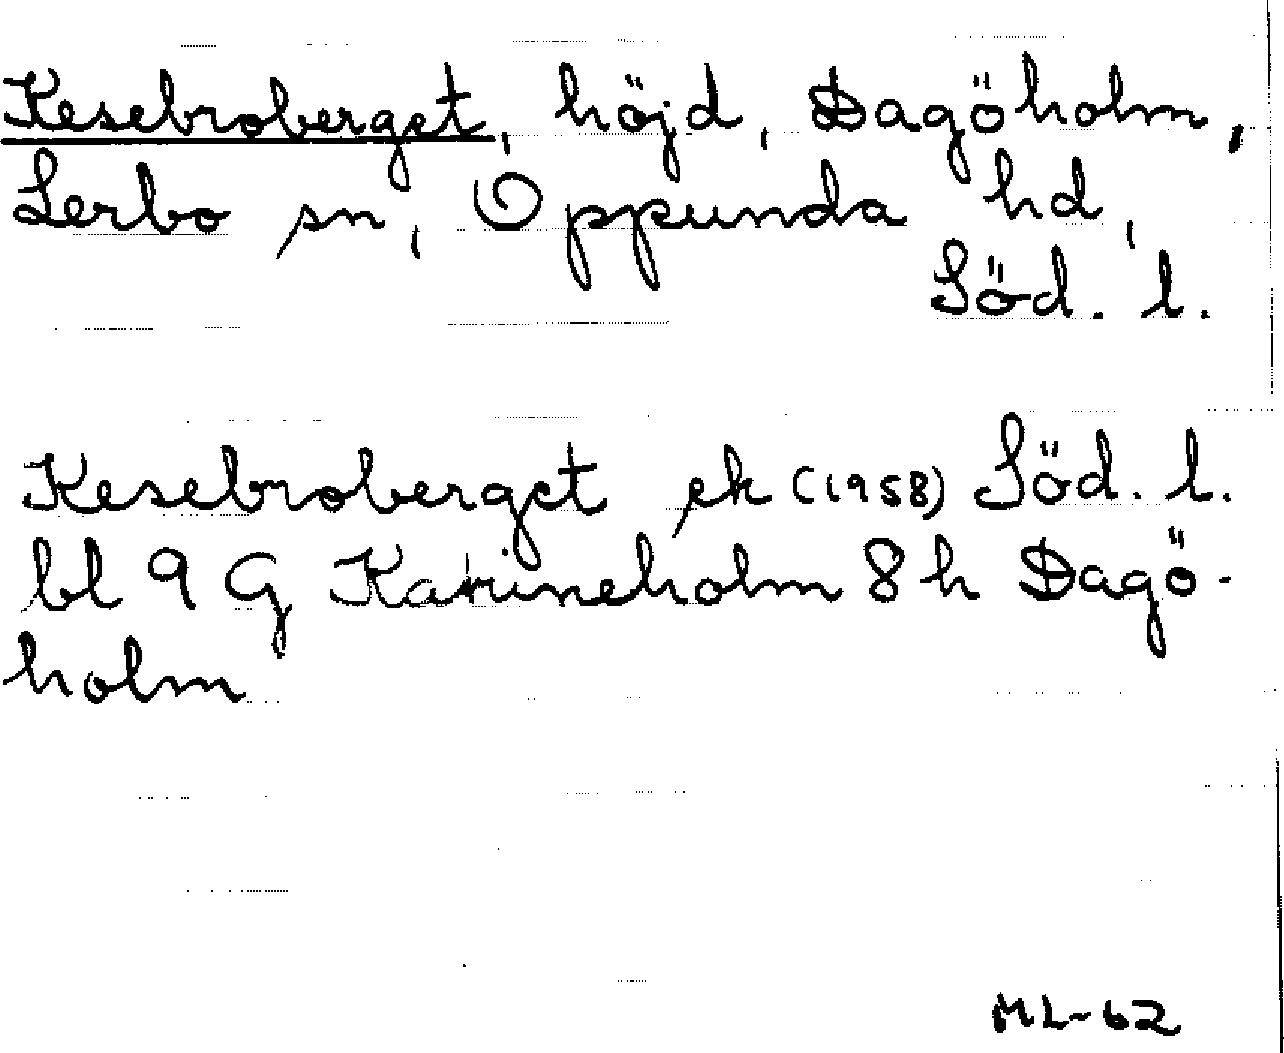 Kesebroberget, höjd, Dagöholm,
Lerbo sn, Oppunda hd,
Söd. l.
Kesebroberget ek (1958) Söd. l.
bl 9 G Katrineholm 8 h Dagö-
holm
ML-62